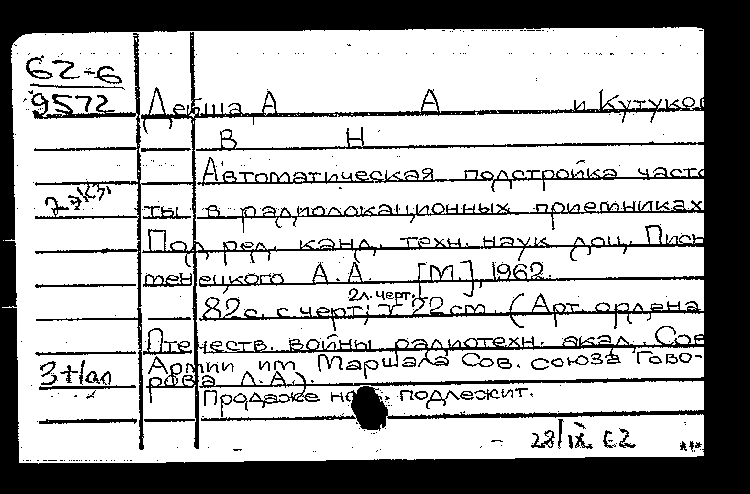 62-6
9572
Дейша А А и Кутуков
В Н
Автоматическая подстройка часто
ты в радиолокационных приемниках
2 экз.
Под ред. канд. техн. наук доц. Пись
менецкого А.А. [М.], 1962.
82с. с черт; 2л. черт. 22см. (Арт. ордена
Отечеств. войны радиотехн. акад. Сов
Армии им Маршала Сов. союза Гово-
рова Л.А.).
Продаже не подлежит.
28/IX 62